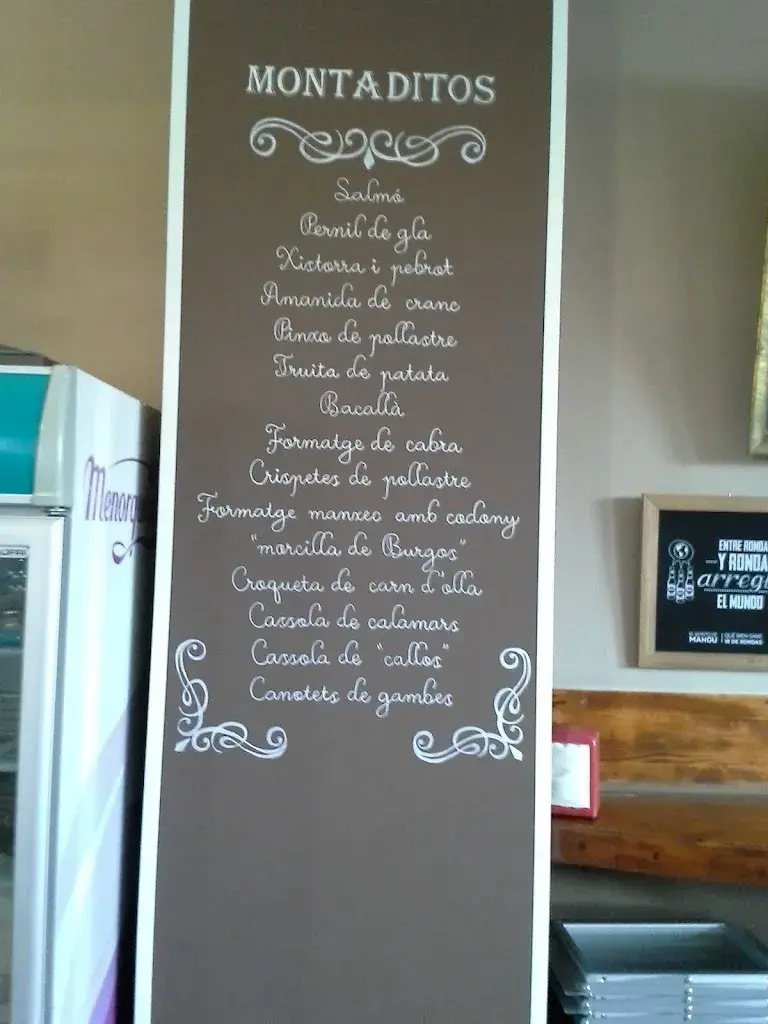 MONTADITOS
Salmó
Pernil de gla
Xistorra i pebrot
Amanida de cranc
Pinxo de pollastre
Truita de patata
Bacallà
Formatge de cabra
Crispetes de pollastre
Formatge manxec amb codony
"morcilla de Burgos"
Croqueta de carn d'olla
Cassola de calamars
Cassola de "callos"
Canotets de gambes
ENTRE RONDA
Y RONDA
EL MUNDO
MAHOU